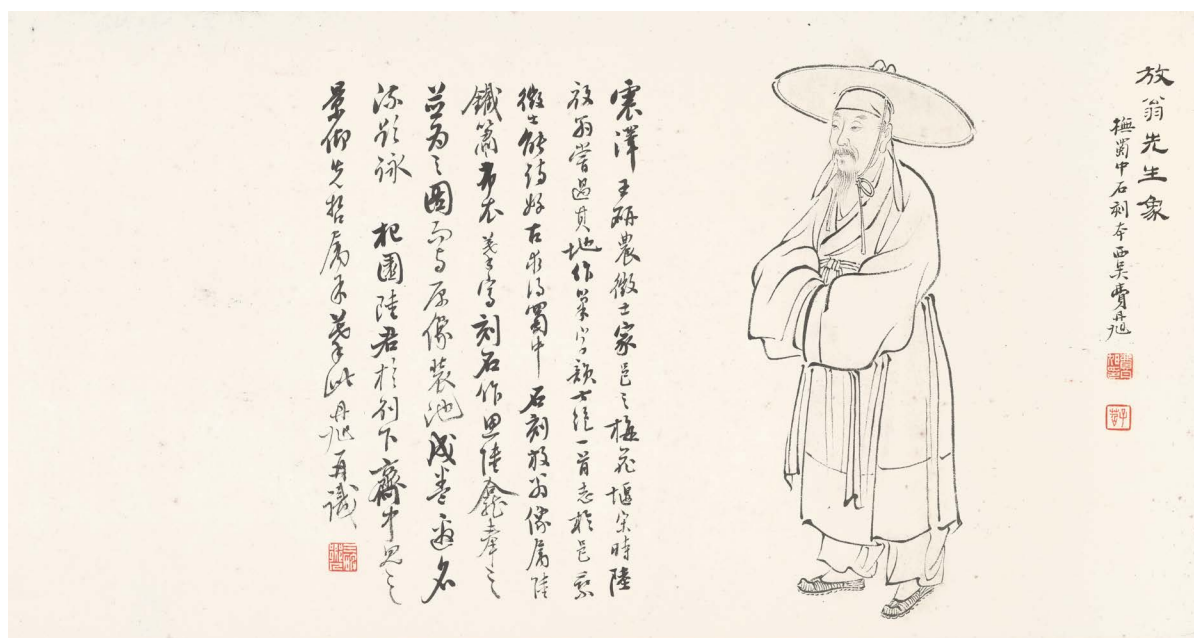 放翁先生象
橅蜀中石刻本西吴費丹旭
震澤王硏農徵士家邑之梅花堰宋時陸
放翁嘗過其地作 字韻七絶一首志於邑乘
徵士能詩好古求得蜀中石刻放翁像屬陸
鐵簫布衣摹寫刻石作思陸龕奉之
並为之圖而與原像裝池成卷遍名
流題詠 杞園陸君於別下齋中見之
景仰先哲屬余摹此丹旭再識